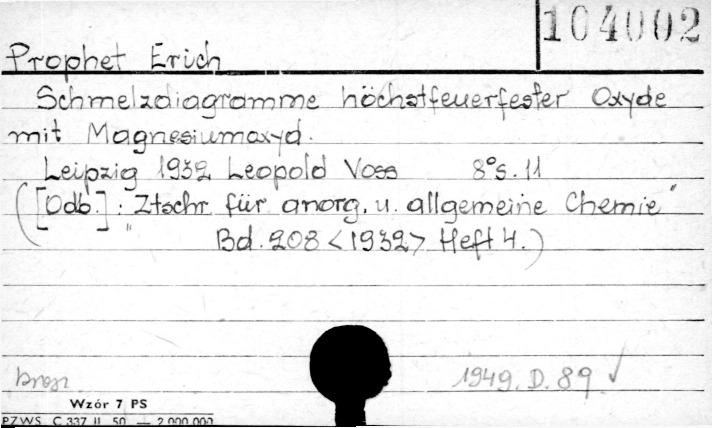 104002
Prophet Erich
Schmelzdiagramme höchstfeuerfester Oxyde
mit Magnesiumoxyd.
Leipzig 1932 Leopold Voss 8° s. 11
([Odb.]: "Ztschr. für anorg. u. allgemeine Chemie"
Bd. 208 <1932> Heft 4.)
brosz.
1949. D. 89 ✓
Wzór 7 PS
PZWS. C 337 II 50 — 2 000 000